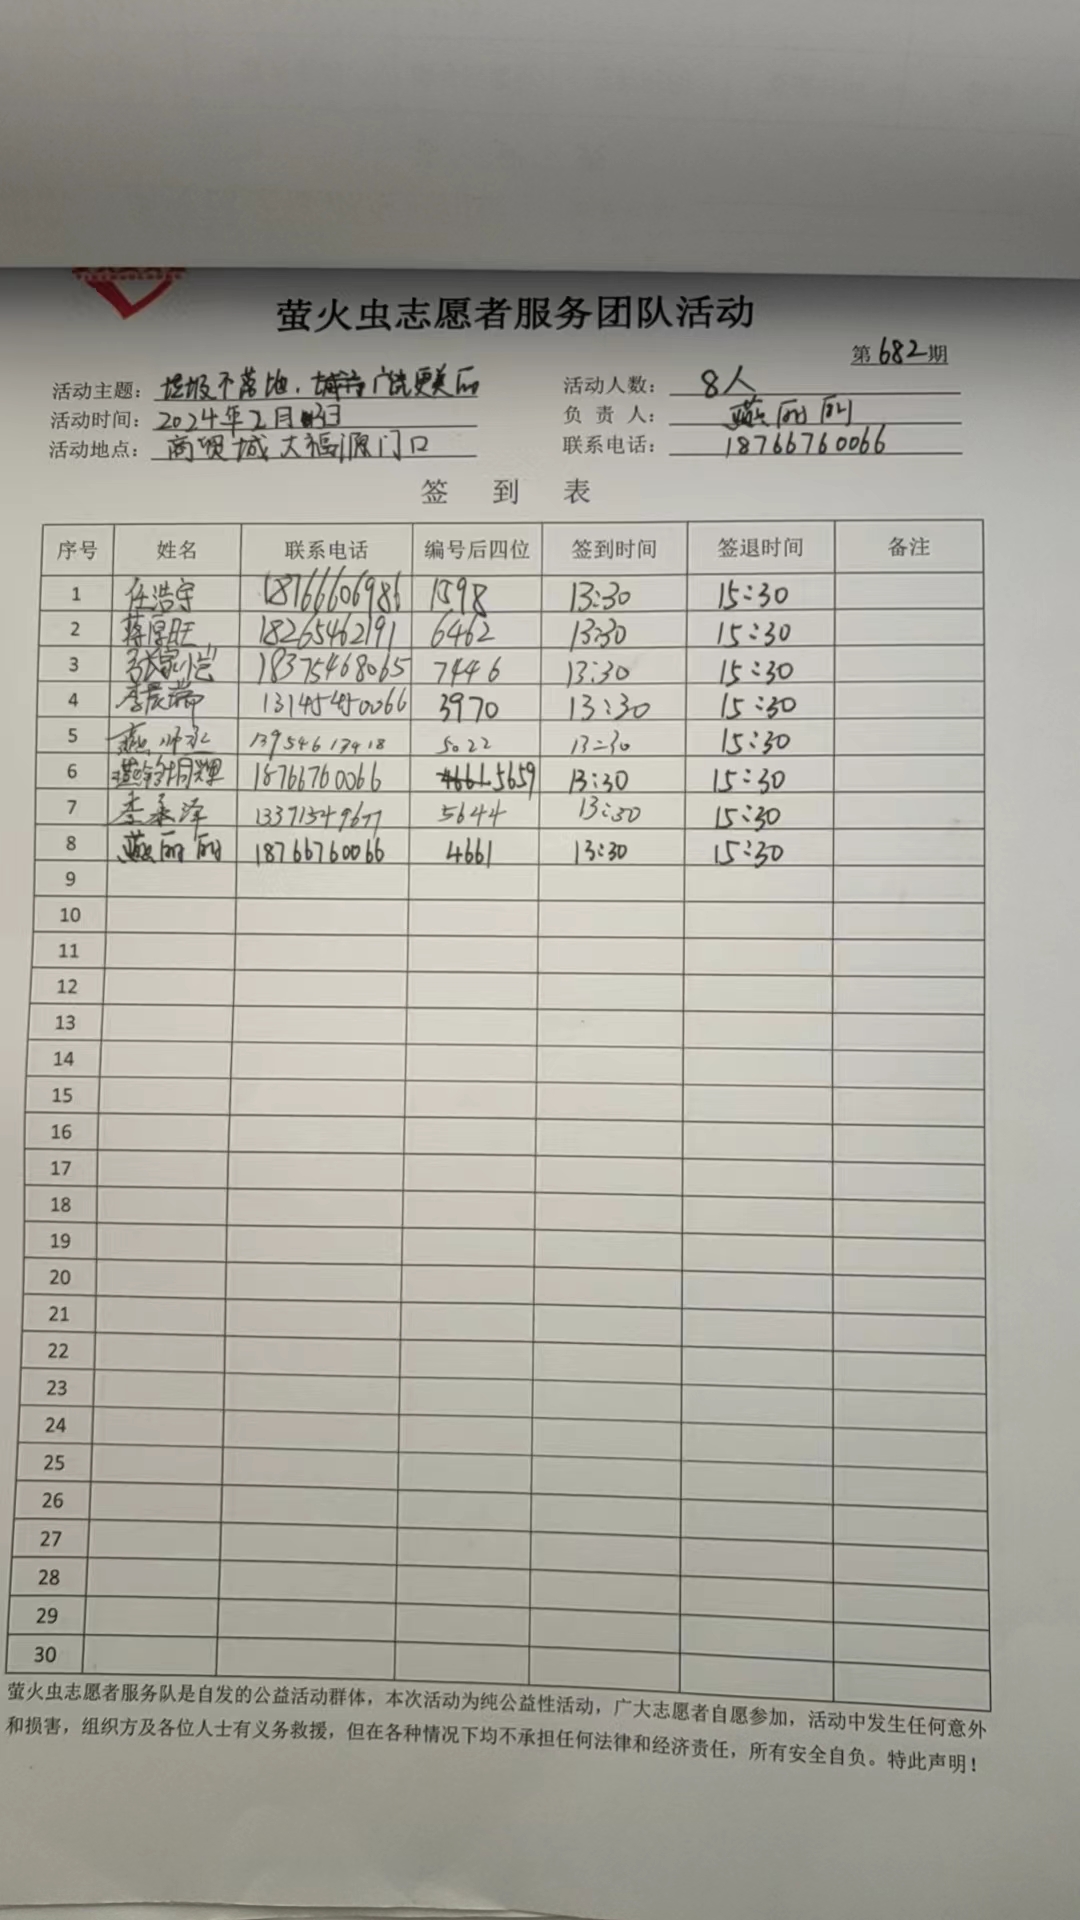 萤火虫志愿者服务团队活动
第682期
活动主题：垃圾不落地，广饶更美丽 活动人数：8人
活动时间：2024年2月3日 负责人：燕丽丽
活动地点：商贸城大福源门口 联系电话：18766760066
签到表
序号 姓名 联系电话 编号后四位 签到时间 签退时间 备注
1 任浩宇 18766606986 1598 13:30 15:30
2 蒋厚旺 18265462191 6462 13:30 15:30
3 18375468065 7446 13:30 15:30
4 李晨瑞 13145450066 3970 13:30 15:30
5 13954613418 5022 13:30 15:30
6 18766760066 5659 13:30 15:30
7 李泽 5644 13:30 15:30
8 燕丽丽 18766760066 4661 13:30 15:30
9
10
11
12
13
14
15
16
17
18
19
20
21
22
23
24
25
26
27
28
29
30
萤火虫志愿者服务队是自发的公益活动群体，本次活动为纯公益性活动，广大志愿者自愿参加，活动中发生任何意外
和损害，组织方及各位人士有义务救援，但在各种情况下均不承担任何法律和经济责任，所有安全自负。特此声明！